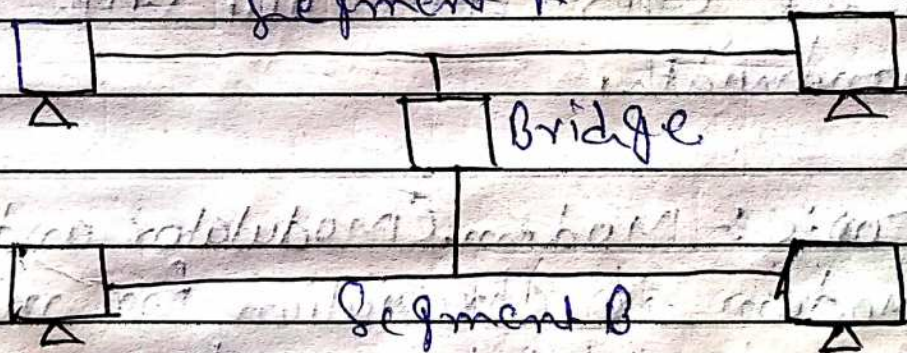 Segment A
Bridge
Segment B